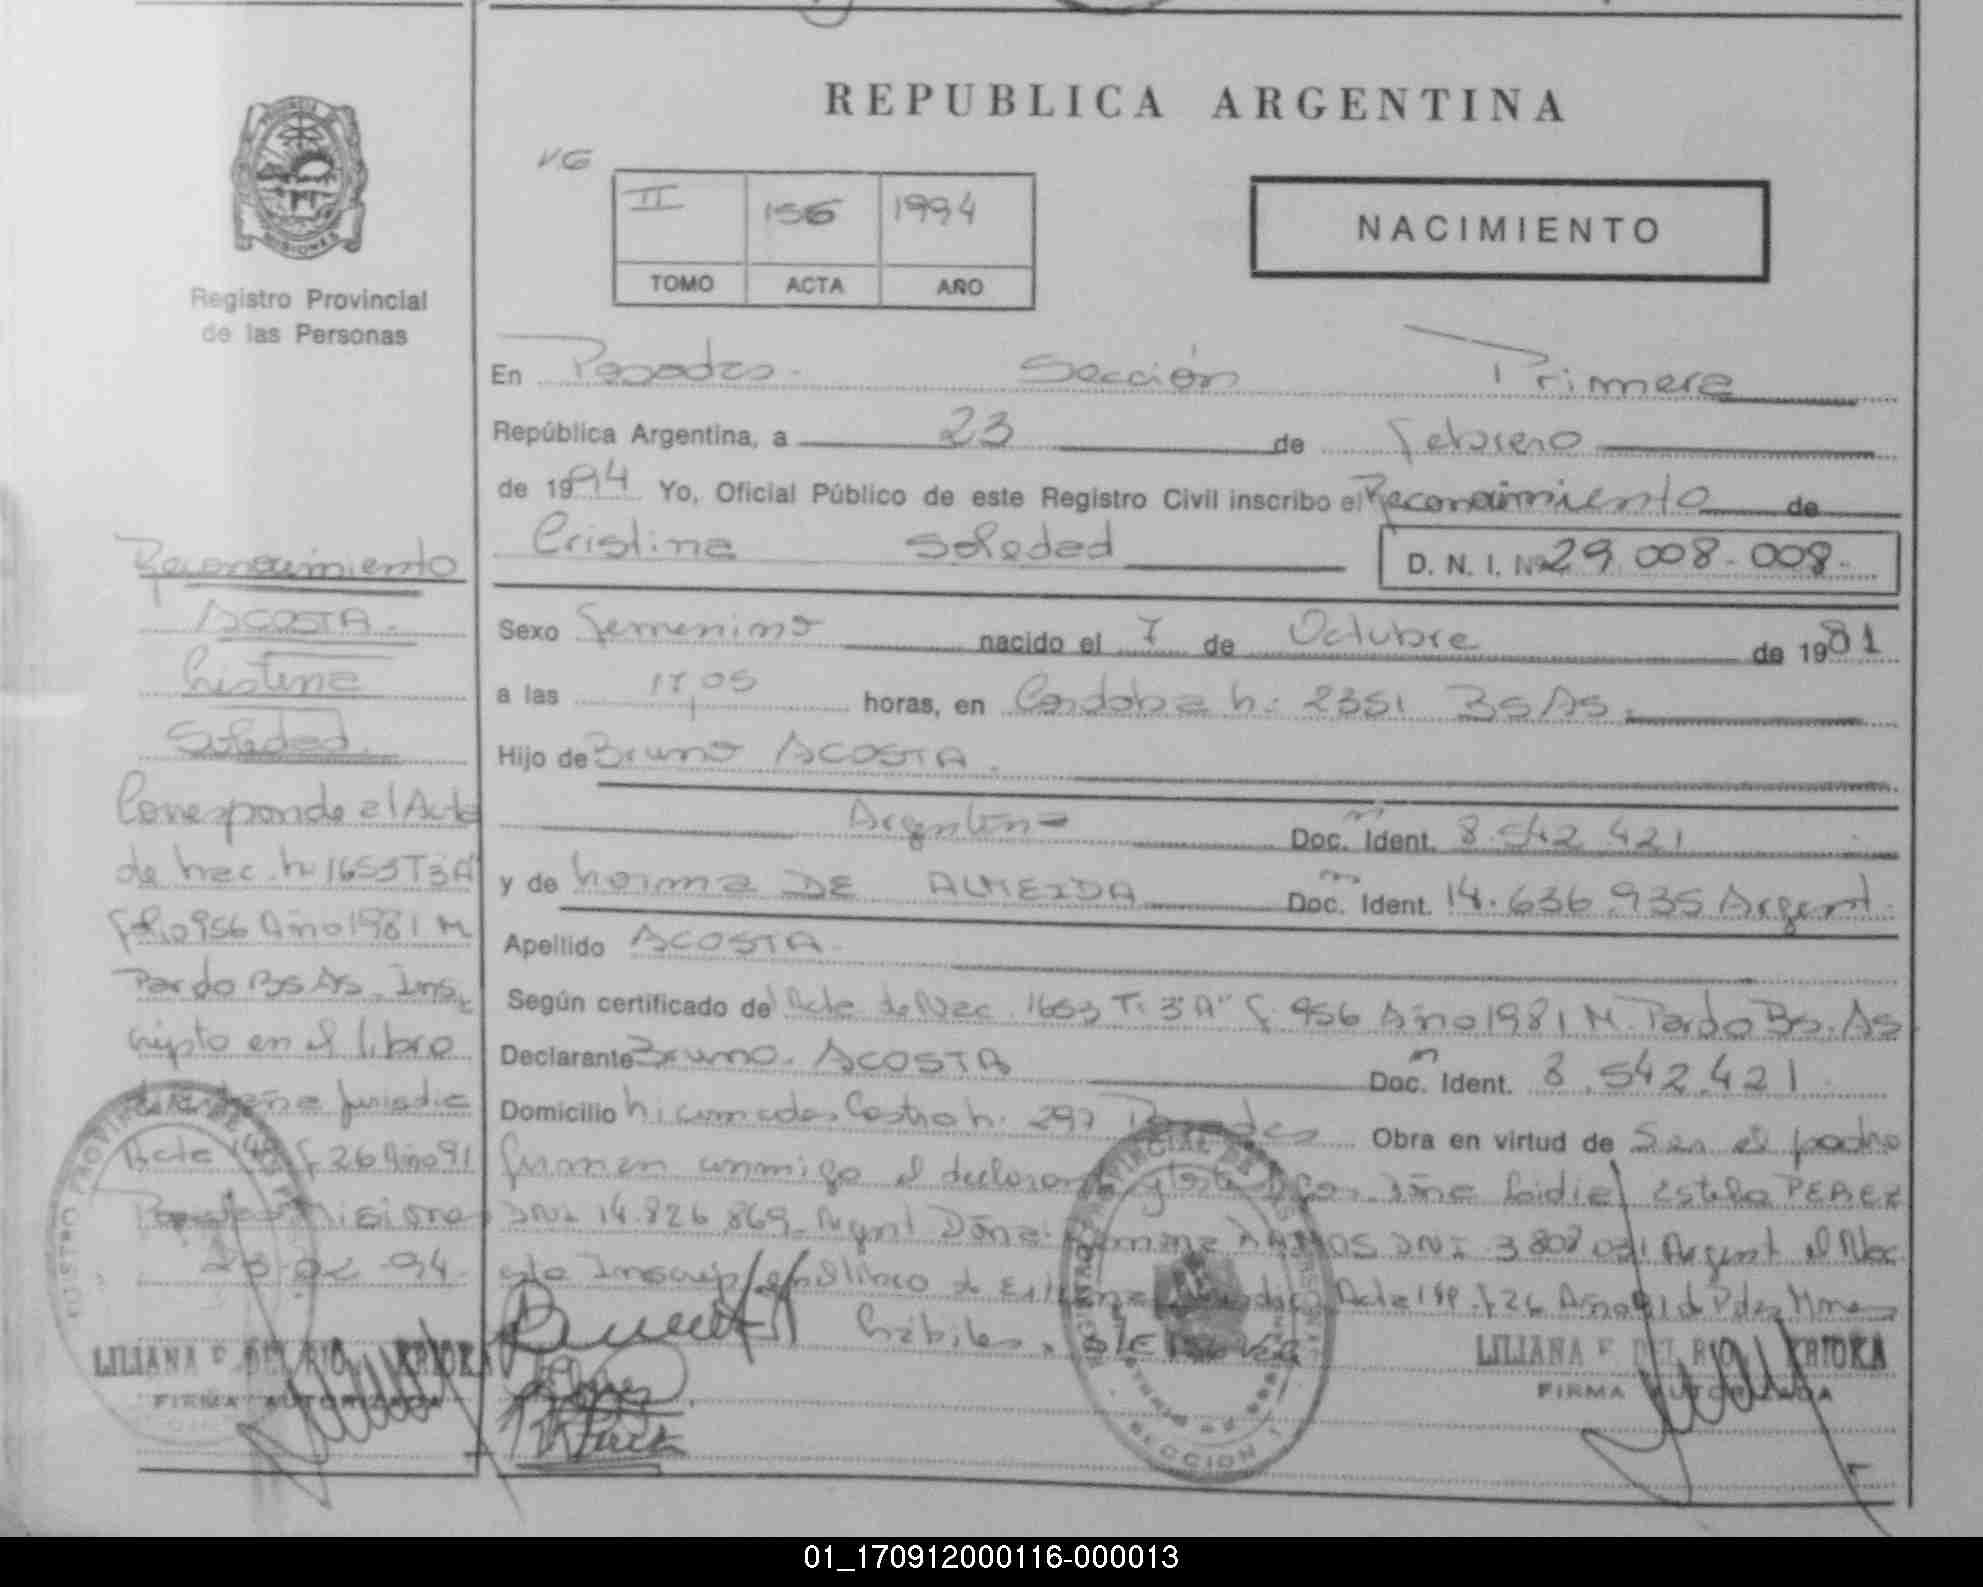 REPUBLICA ARGENTINA
PROVINCIA DE
MISIONES
Registro Provincial
de las Personas
VG
II 156 1994
TOMO ACTA AÑO
NACIMIENTO
En Posadas. Sección Primera
República Argentina, a 23 de febrero
de 1994 Yo, Oficial Público de este Registro Civil inscribo el Reconocimiento de
Cristina Soledad D. N. I. Nº 29.008.008.
Sexo femenino nacido el 7 de Octubre de 1981
a las 17,05 horas, en Cordoba n: 2351 Bs As.
Hijo de Bruno ACOSTA.
Argentino Doc. Ident. 8.542.421
y de Norma DE ALMEIDA Doc. Ident. 14.636.935 Argent.
Apellido ACOSTA.
Según certificado del Acta de Nac. 1653 T: 3"A" f. 956 Año 1981 M. Pardo Bs. As
Declarante Bruno. ACOSTA Doc. Ident. 8.542.421.
Domicilio Nicomedes Castro n. 297 Posadas Obra en virtud de Ser el padre
firman conmigo el declarante y testigos Doña Estela PEREZ
DNI 14.826.869. Argent Doña RAMOS DNI 3.808.031 Argent el Nac.
esta Inscrip en el libro de Extraña Acta 149 f 26 Año 91 de Pdas Mnes
hábiles.
Reconocimiento
ACOSTA.
Cristina
Soledad.
Corresponde al Acta
de Nac. n 1653 T 3 A"
folio 956 Año 1981 M
Pardo Bs As. Ins-
cripto en el libro
de Extraña Jurisdic
Acta 149 f 26 Año 91
Posadas Misiones
23 02 94.
LILIANA F. DEL RIO KRIOKA
FIRMA AUTORIZADA
REGISTRO PROVINCIAL DE LAS PERSONAS
SECCION 1
LILIANA F. DEL RIO KRIOKA
FIRMA AUTORIZADA
01_170912000116-000013